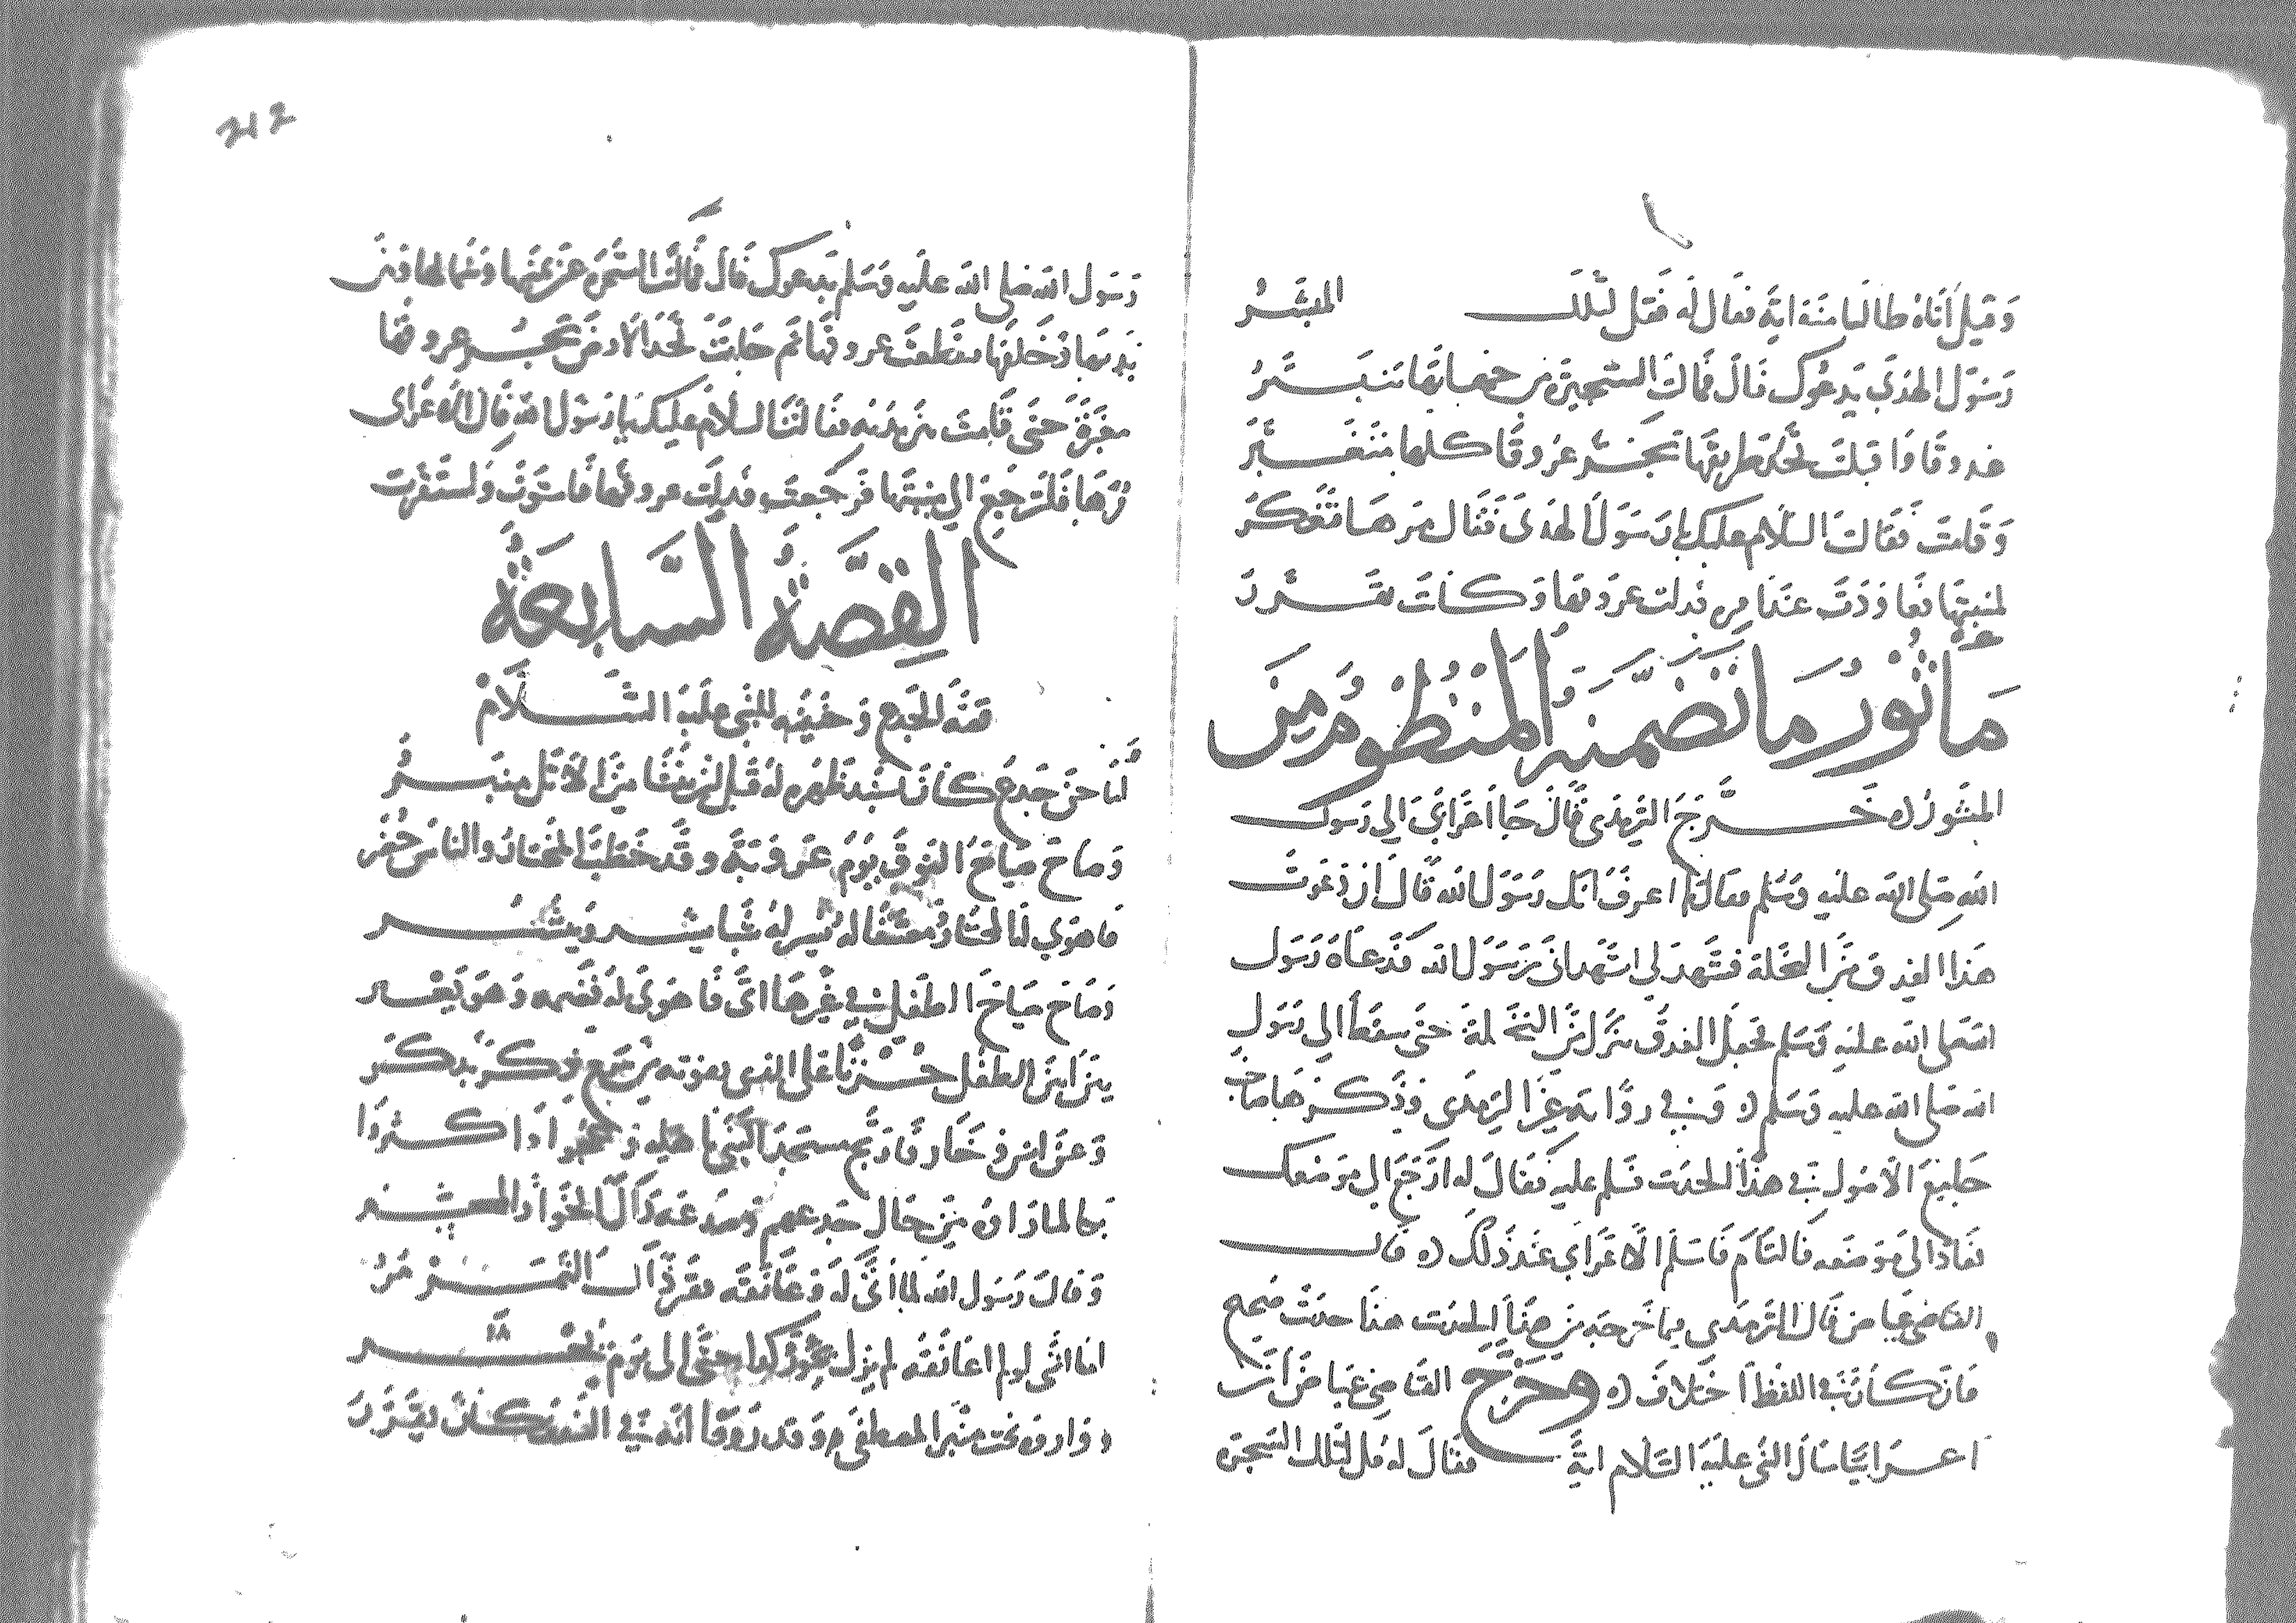 وَقيل أتاه طالبا منه اية فقال له فقل لتلك المبشر
رسول الهدى يدعوك قال فمالت الشجيرة من جنباتها تتبستر
عدوقا واقبلت تخد طريقها تجر عروقا كلها تتغبّر
وقامت فقالت السلام عليك يا رسول الهدى فقال مرها تفكر
لمنبتها فعاودت عندامر فدلت عروقها وكانت تقرر
مأثور ما تضمنه المنظوم من
المنثور خرج الترمذي قال جا اعرابي الي رسول
الله صلى الله عليه وسلم فقال بم اعرف انك رسول الله قال ان دعوت
هذا العدق من النخلة فشهد لي اشهد اني رسول الله فدعاه رسول
الله صلى الله عليه وسلم فجعل العدق ينزل من النخلة حتى سقط الي رسول
الله صلى الله عليه وسلم وفي رواية غير الترمذي وذكرها صاحب
جامع الاصول في هذا الحديث فسلم عليه فقال له ارجع الي موضعك
فعاد الى موضعه فالتأم فاسلم الاعرابي عند ذلك قال
القاضي عياض قال الترمذي فيما خرجه من هذا الحديث هذا حديث صحيح
فان كان في اللفظ اختلاف وخرج القاضي عياض ان
اعرابيا سأل النبي عليه السلام اية فقال له قل لتلك الشجرة
212
رسول الله صلى الله عليه وسلم يدعوك قال فمالت الشجرة عن يمينها وشمالها وبين
يديها وخلفها فقطعت عروقها ثم جاءت تخد الارض تجر عروقها
مغبرة حتى قامت بين يديه فقالت السلام عليك يا رسول الله قال الاعرابي
مرها فلترجع الي منبتها فرجعت فدلت عروقها فاستوت واستقرت
القصة السابعة
قصة الجدع وحنينه للنبي عليه السلام
لنا حن جدع كان يسند ظهره له قبل ان رقا من الاثل منبر
وصاح صياح النوق يوم عروبة وقد خطب المختار والناس حضر
فاهوي لنا المختار معتنقا له يسر له شيا يشر ويبشر
وصاح صياح الطفل في غيرها اتى فاهوى له فضمه وهو يعبر
يئن انين الطفل حزنا على الذي يفوته من جمع ذكر يدكر
وعن انس وخار فارتج مسجد النبي باهله وضجوا واكثروا
بكا لما راوه من حال جدعهم وقد عد ذاك الخوار المعشر
وقال رسول الله لما أتى له وعانقه فقر ذاك النمر
اما انني لو لم اعانقه لم يزل كذا حتى الى يوم يحشر
ووارو تحت منبر المصطفى وقد رووا انه في السقف كان يقرر